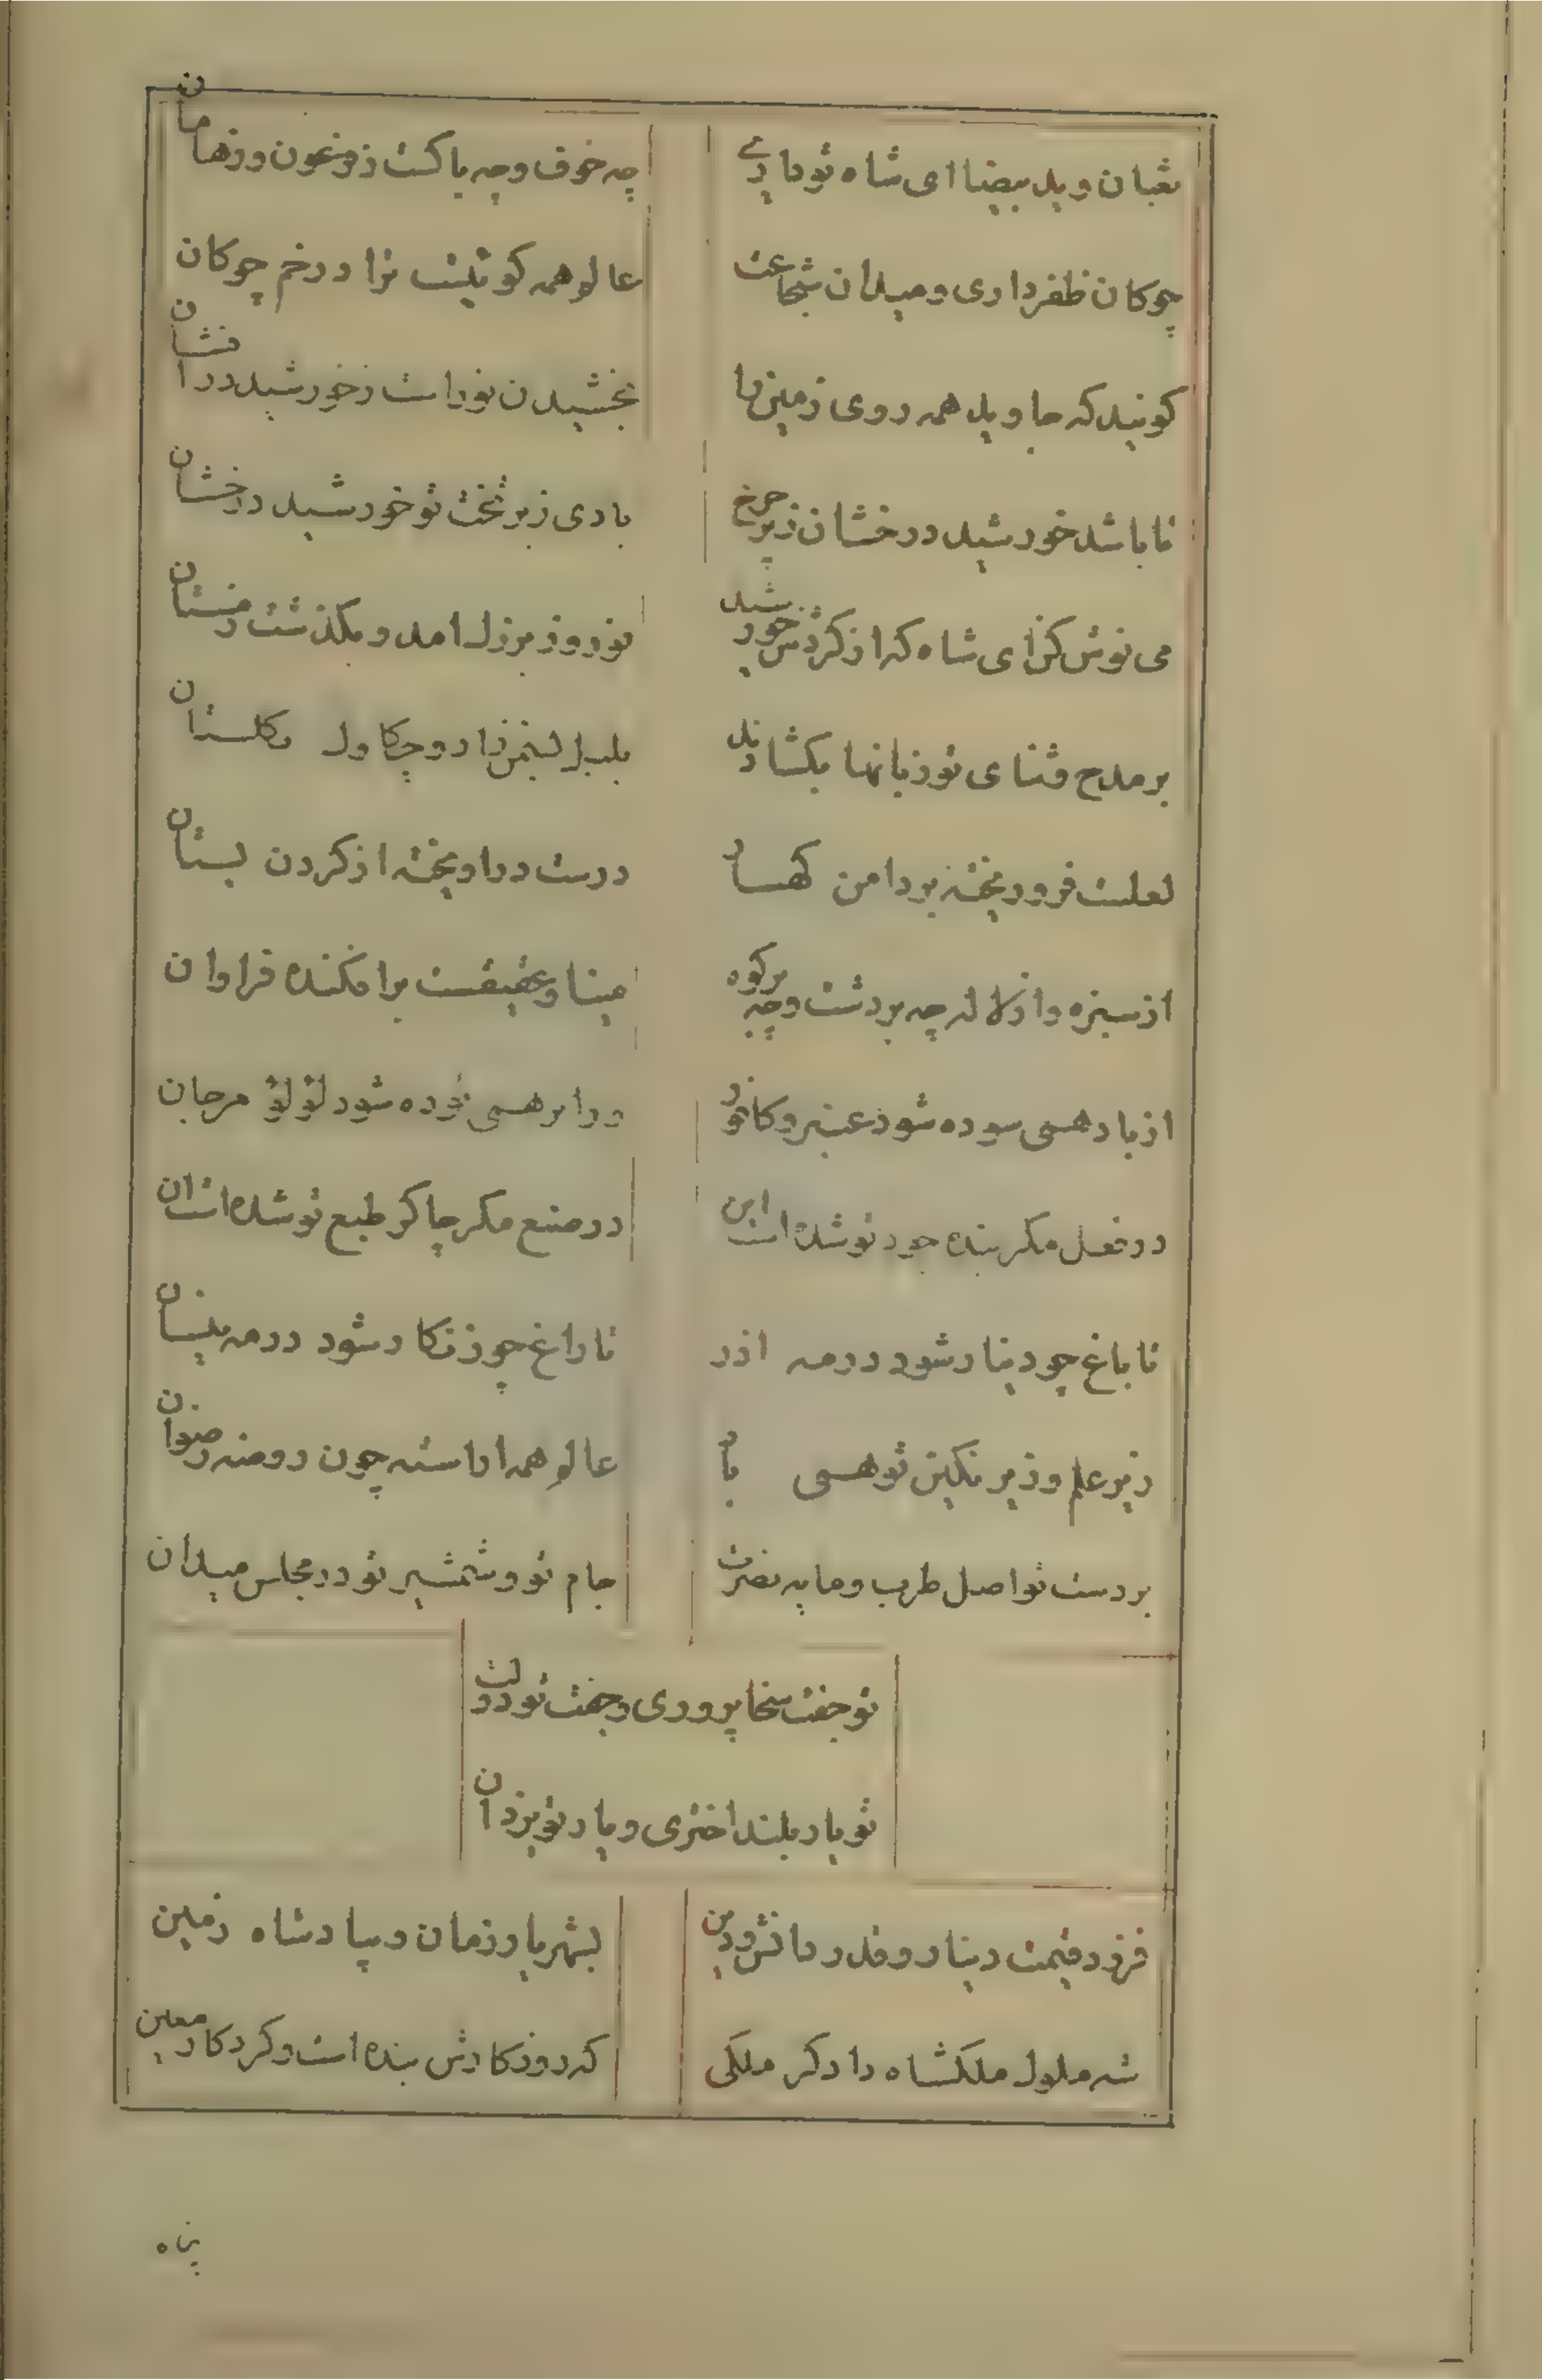 ثعبان و ید بیضا ای شاه تو داری
چه خوف و چه باکت ز فرعون و ز هامان
چوکان ظفر داری و میدان شجاعت
عالم همه کوئیست ترا در خم چوکان
کوئید که جاوید همه روی زمین را
بخشیدن نور است ز خورشید درافشان
تا باشد خورشید درخشان زبر چرخ
بادی زبر تخت تو خورشید درخشان
می نوش کن ای شاه که از کردش خورشید
نوروز بزرك امد و بکذشت زمستان
بر مدح و ثنای تو زبانها بکشادند
بلبل بچمن زار و چکاوك بکلستان
لعلست فرو ریخته بر دامن کهسار
درست دراویخته از کردن بستان
از سبزه و از لاله چه بر دشت و چه بر کوه
مینا و عقیقست براکنده فراوان
از باد همی سوده شود عنبر و کافور
وز ابر همی توده شود لؤلؤ مرجان
در فعل مکر بنده جود تو شده است این
در صنع مکر چاکر طبع تو شده است ان
تا باغ چو دینار شود در مه اذر
تا راغ چو زنکار شود در مه نیسان
زیر علم و زیر نکین تو همی باد
عالم همه اراسته چون روضه رضوان
بر دست تو اصل طرب و مایه نصرت
جام تو و شمشیر تو در مجلس میدان
تو جفت سخا پروری و جفت تو دولت
تو یار بلند اختری و یار تو یزدان
فزود قیمت دینار و قدر دانش و دین
بشهریار زمان و بپادشاه زمین
شه ملوك ملکشاه دادکر ملکی
که روزکارش بنده است و کردکار معین
پناه